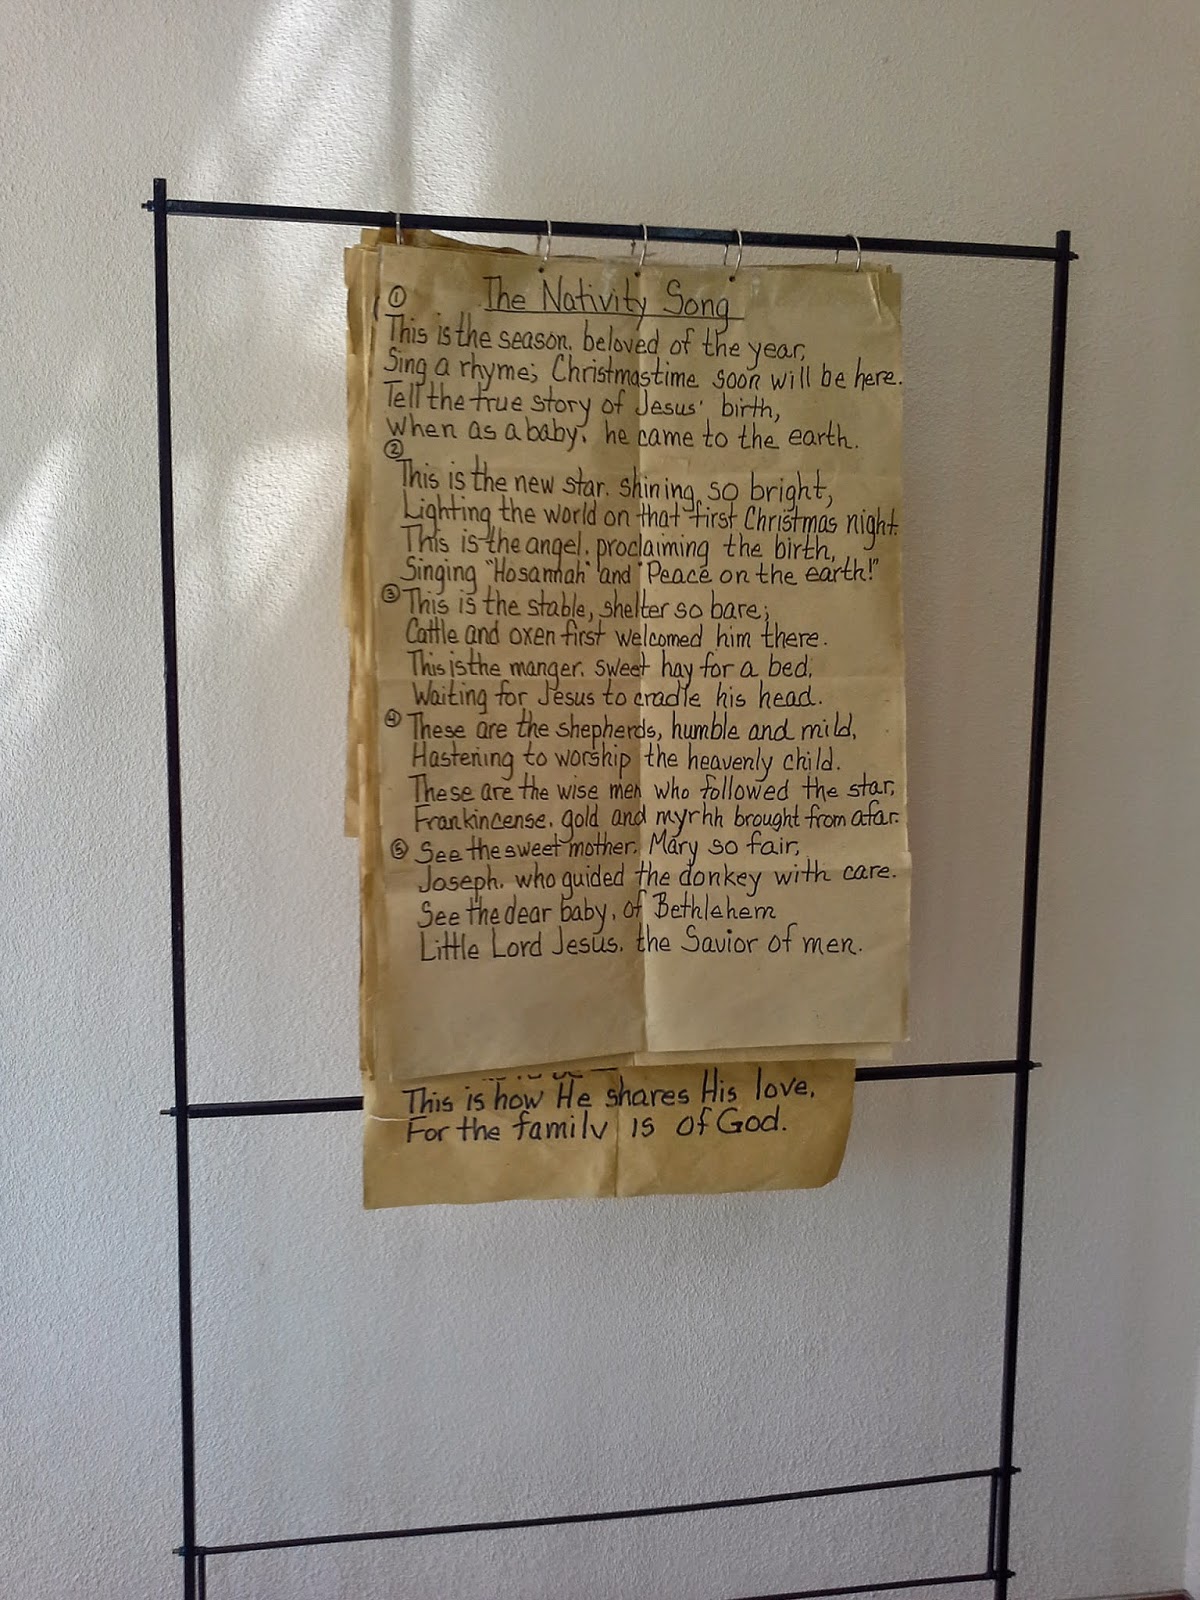 The Nativity Song
①
This is the season, beloved of the year,
Sing a rhyme; Christmastime soon will be here.
Tell the true story of Jesus' birth,
When as a baby, he came to the earth.
②
This is the new star, shining so bright,
Lighting the world on that first Christmas night.
This is the angel, proclaiming the birth,
Singing "Hosannah" and "Peace on the earth!"
③ This is the stable, shelter so bare;
Cattle and oxen first welcomed him there.
This is the manger, sweet hay for a bed,
Waiting for Jesus to cradle his head.
④ These are the shepherds, humble and mild,
Hastening to worship the heavenly child.
These are the wise men who followed the star,
Frankincense, gold and myrhh brought from afar.
⑤ See the sweet mother, Mary so fair,
Joseph, who guided the donkey with care.
See the dear baby, of Bethlehem
Little Lord Jesus, the Savior of men.
This is how He shares His love,
For the family is of God.